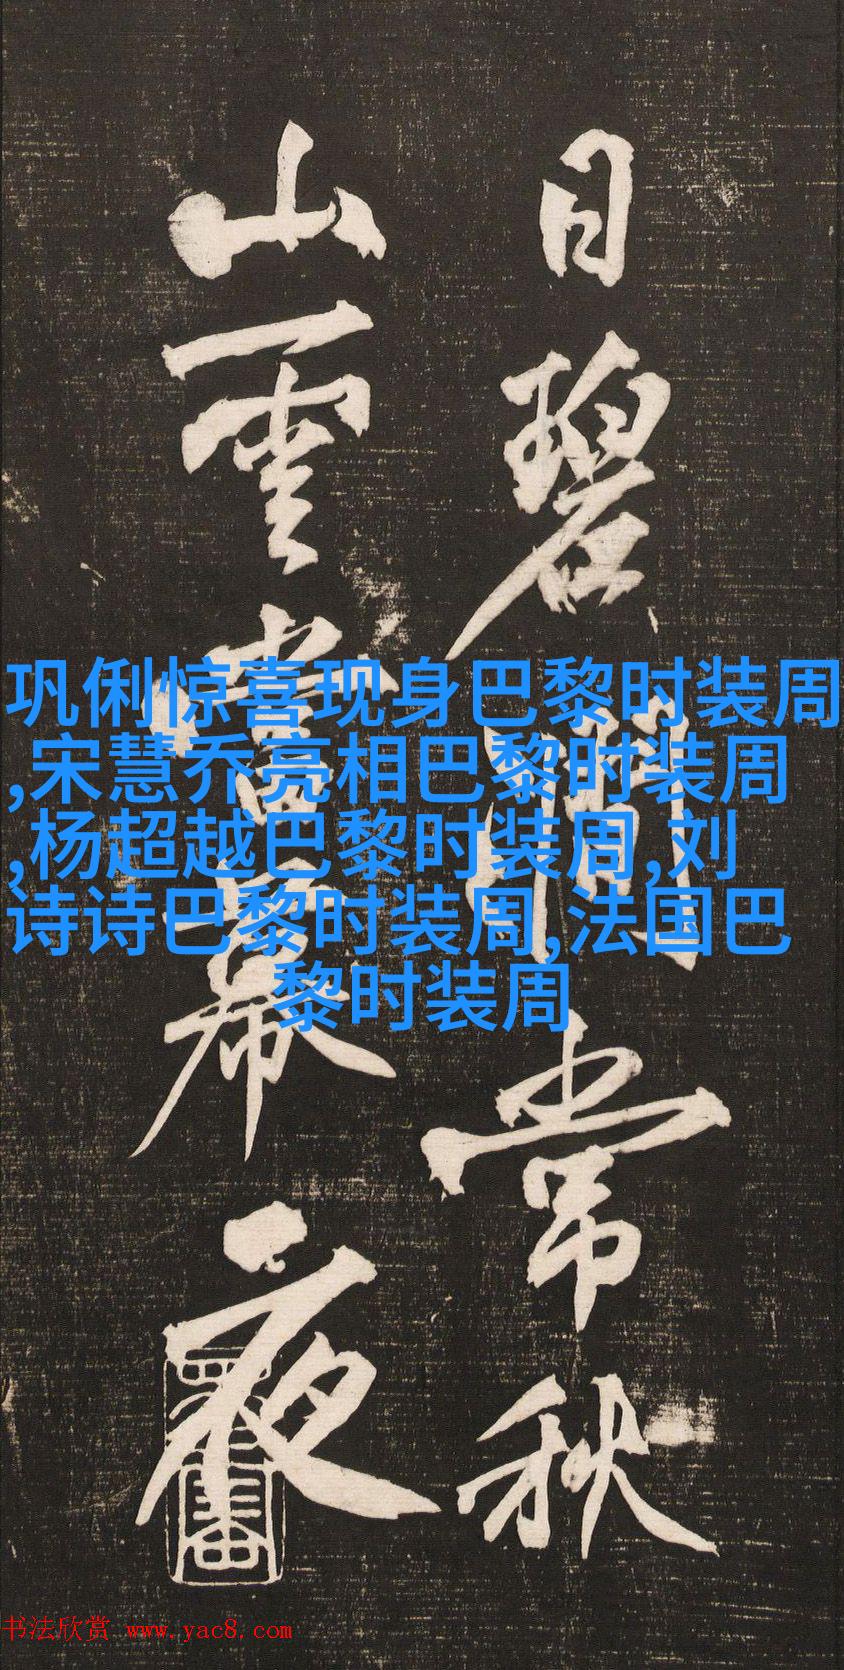 日碧常秋
山雲當幕夜
巩俐惊喜现身巴黎时装周
,宋慧乔亮相巴黎时装周
,杨超越巴黎时装周,刘
诗诗巴黎时装周,法国巴
黎时装周
书法欣赏 www.yac8.com